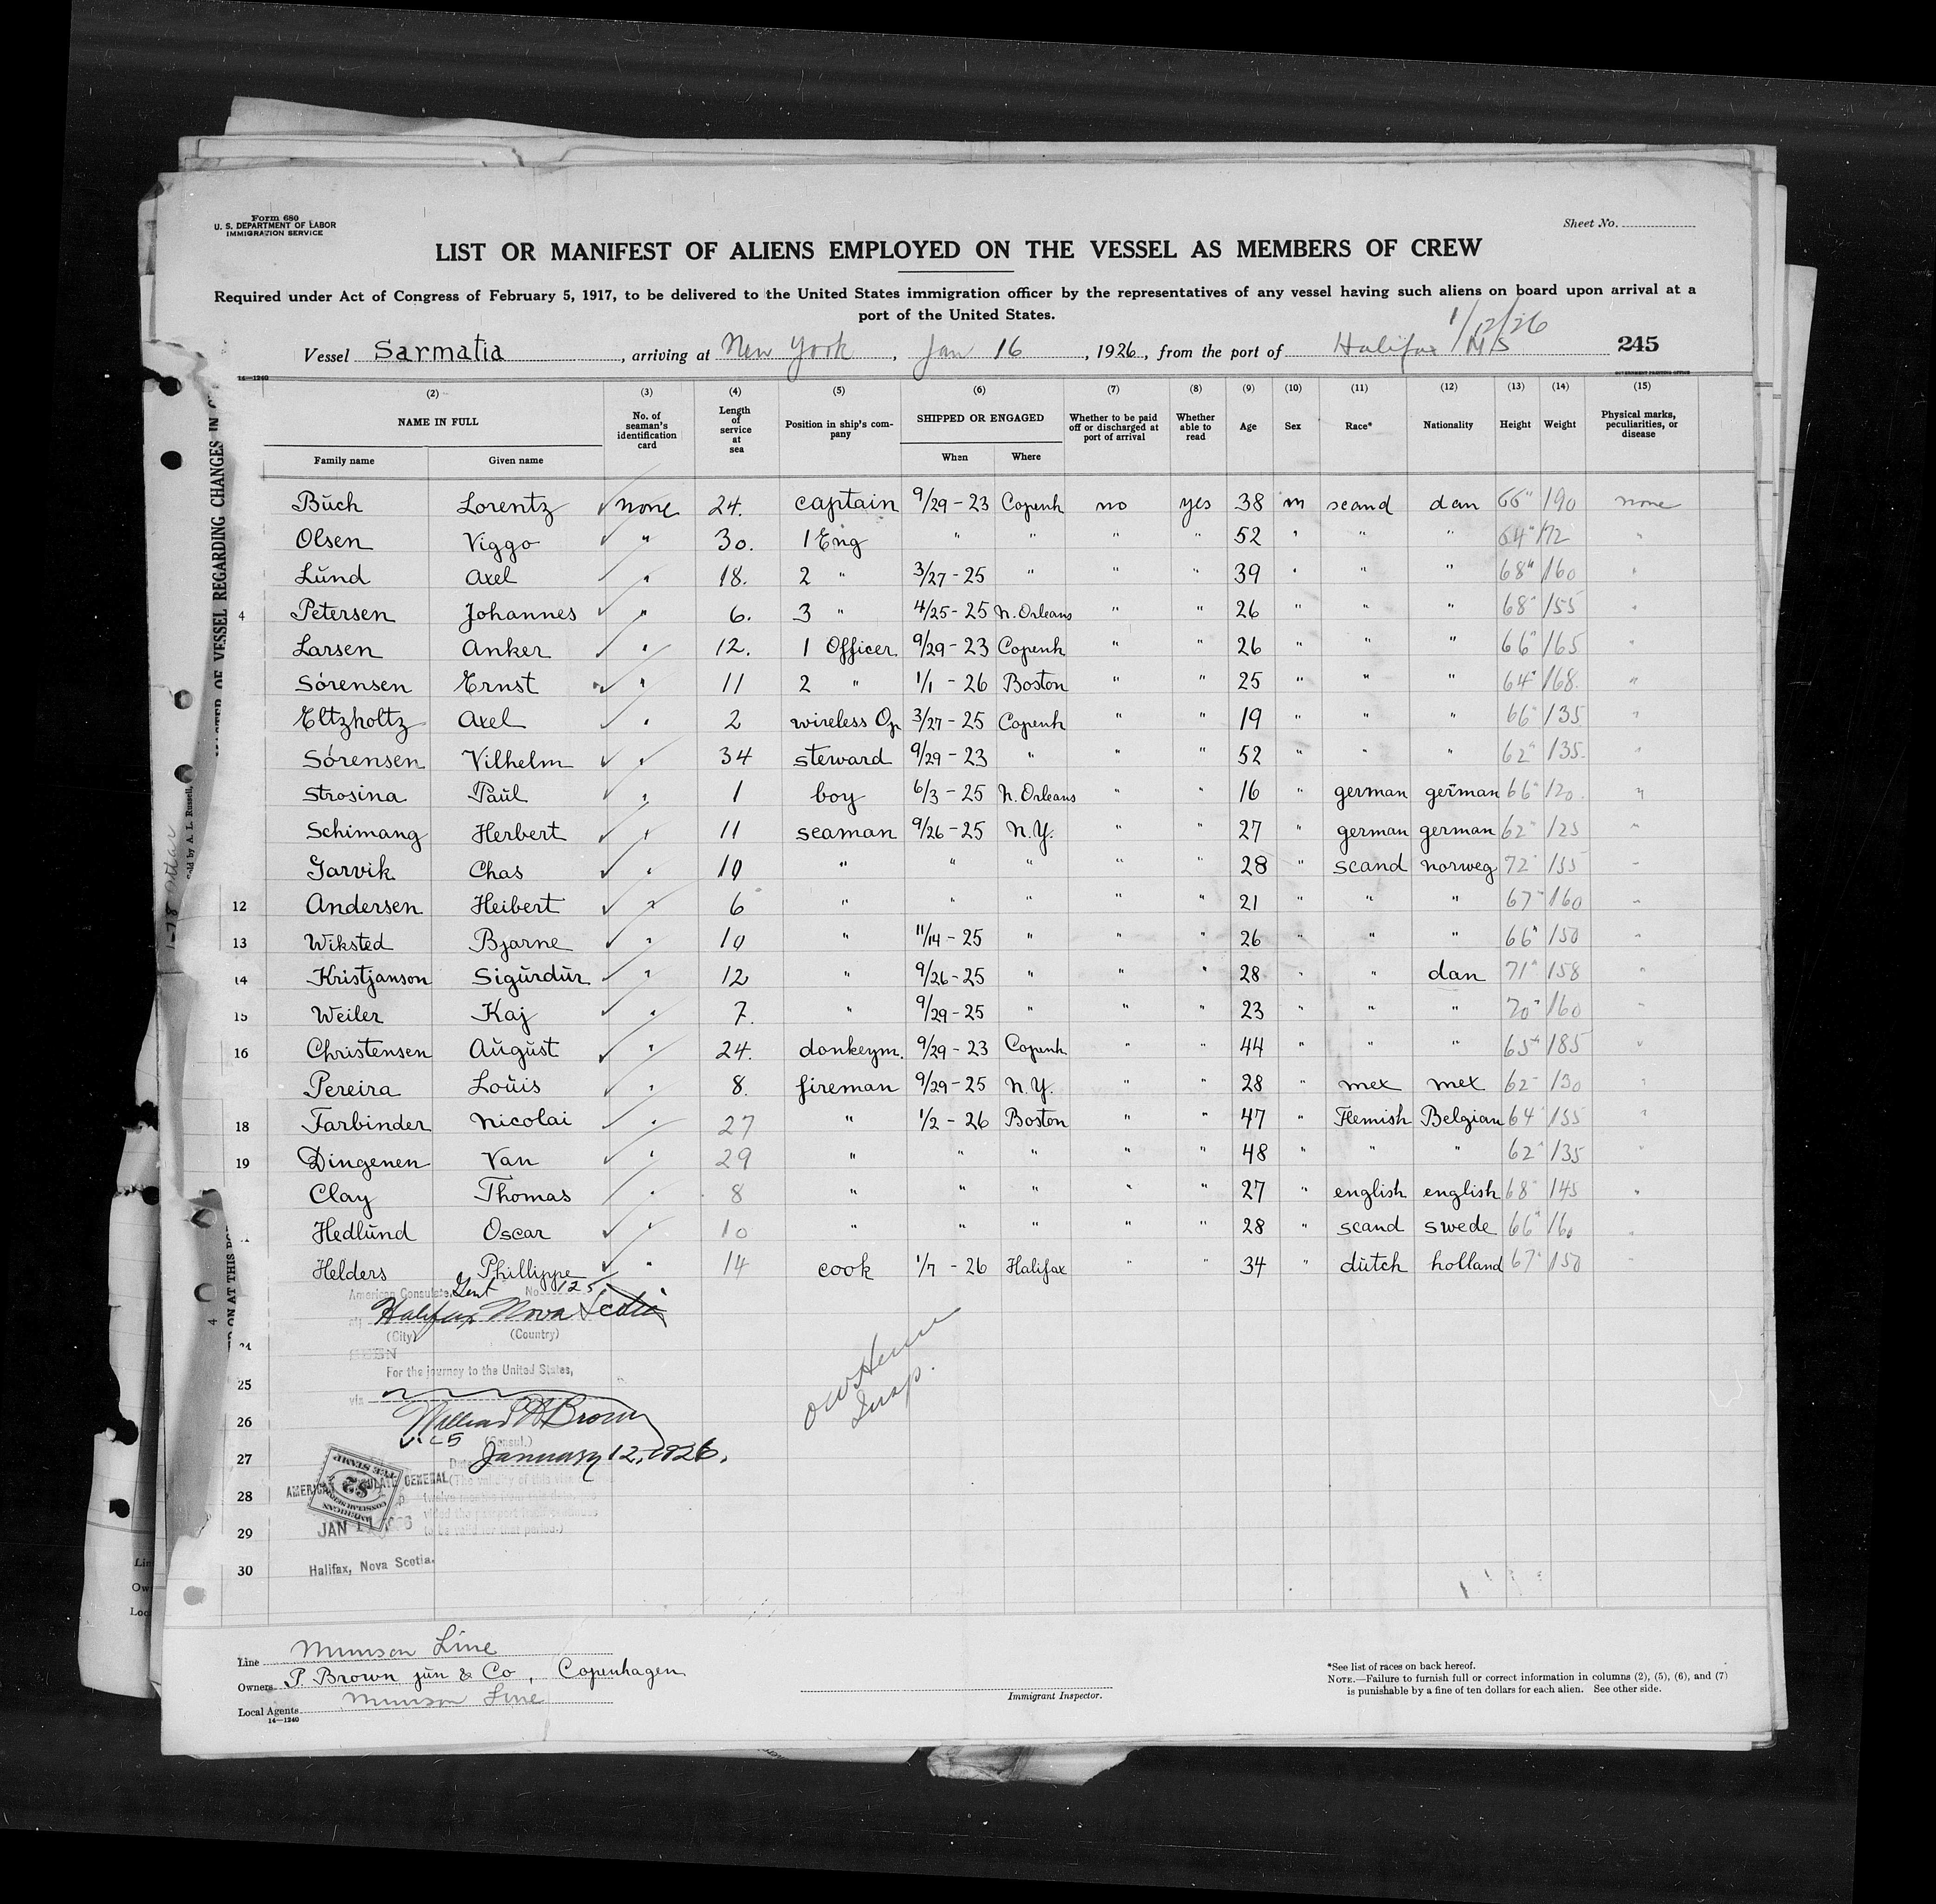 Form 680
U. S. DEPARTMENT OF LABOR
IMMIGRATION SERVICE
Sheet No.
LIST OR MANIFEST OF ALIENS EMPLOYED ON THE VESSEL AS MEMBERS OF CREW
Required under Act of Congress of February 5, 1917, to be delivered to the United States immigration officer by the representatives of any vessel having such aliens on board upon arrival at a
port of the United States.
1/12/26
Vessel Sarmatia, arriving at New York, Jan 16, 1926, from the port of Halifax NS 245
14—1240
(2) (3) (4) (5) (6) (7) (8) (9) (10) (11) (12) (13) (14) (15)
NAME IN FULL No. of seaman's identification card Length of service at sea Position in ship's company SHIPPED OR ENGAGED Whether to be paid off or discharged at port of arrival Whether able to read Age Sex Race* Nationality Height Weight Physical marks, peculiarities, or disease
Family name Given name When Where
Buch Lorentz none 24. captain 9/29-23 Copenh no yes 38 m scand dan 66" 190 none
Olsen Viggo " 30. 1 Eng " " " " 52 " " " 64" 172 "
Lund Axel " 18. 2 " 3/27-25 " " " 39 " " " 68" 160 "
4 Petersen Johannes " 6. 3 " 4/25-25 N. Orleans " " 26 " " " 68" 155 "
Larsen Anker " 12. 1 Officer 9/29-23 Copenh " " 26 " " " 66" 165 "
Sörensen Ernst " 11 2 " 1/1-26 Boston " " 25 " " " 64" 168 "
Eltzholtz Axel " 2 wireless Op 3/27-25 Copenh " " 19 " " " 66" 135 "
Sörensen Vilhelm " 34 steward 9/29-23 " " " 52 " " " 62" 135 "
Strosina Paul " 1 boy 6/3-25 N. Orleans " " 16 " german german 66" 120 "
Schimang Herbert " 11 seaman 9/26-25 N.Y. " " 27 " german german 62" 125 "
Garvik Chas " 10 " " " " " 28 " scand norweg 72" 155 "
12 Andersen Heibert " 6 " " " " " 21 " " " 67" 160 "
13 Wiksted Bjarne " 10 " 11/14-25 " " " 26 " " " 66" 150 "
14 Kristjanson Sigurdur " 12 " 9/26-25 " " " 28 " " dan 71" 158 "
15 Weiler Kaj " 7. " 9/29-25 " " " 23 " " " 70" 160 "
16 Christensen August " 24. donkeym. 9/29-23 Copenh " " 44 " " " 65" 185 "
Pereira Louis " 8. fireman 9/29-25 N.Y. " " 28 " mex mex 62" 130 "
18 Farbinder Nicolai " 27 " 1/2-26 Boston " " 47 " Flemish Belgian 64" 155 "
19 Dingenen Van " 29 " " " " " 48 " " " 62" 135 "
Clay Thomas " 8 " " " " " 27 " english english 68" 145 "
Hedlund Oscar " 10 " " " " " 28 " scand swede 66" 160 "
Helders Phillippe " 14 cook 1/7-26 Halifax " " 34 " dutch holland 67" 150 "
American Consulate, Genl No. 125
at Halifax Nova Scotia
(City) (Country)
SEEN
For the journey to the United States,
via
24
25
26
27
28
29
30
(Consul.)
Date January 12, 1926.
AMERICAN CONSULATE GENERAL
(The validity of this visa
twelve months from this date, pro-
vided the passport itself continues
to be valid for that period.)
AMERICAN CONSULAR SERVICE $2 FEE STAMP
Halifax, Nova Scotia.
Insp.
Line Munson Line
Owners P. Brown jun & Co, Copenhagen
Local Agents Munson Line
14—1240
Immigrant Inspector.
*See list of races on back hereof.
NOTE.—Failure to furnish full or correct information in columns (2), (5), (6), and (7)
is punishable by a fine of ten dollars for each alien. See other side.
OF VESSEL REGARDING CHANGES IN
Sold by A. L. Russell,
ON AT THIS